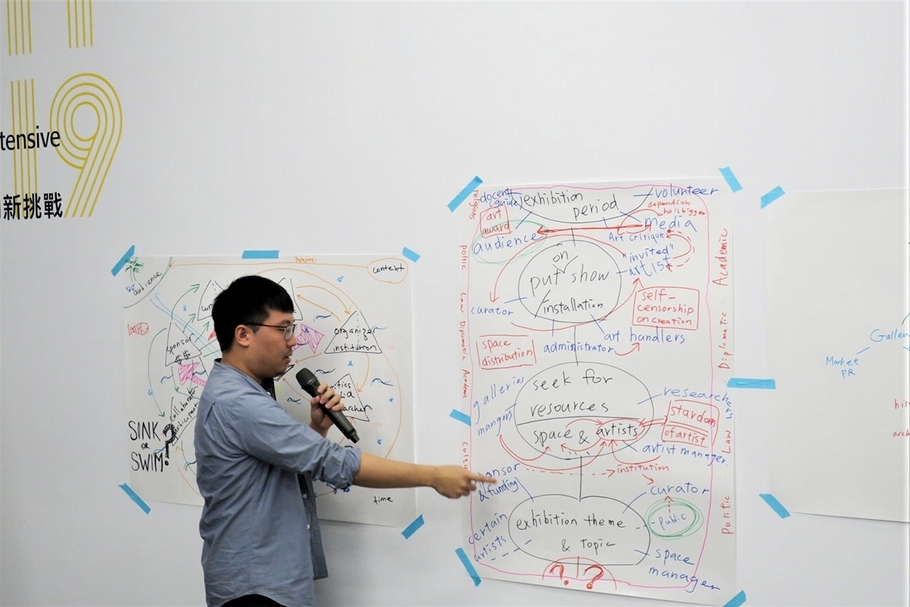 19
tensive
新挑戰
audience
context
sponsor
organizer
institution
SINK
OR
SWIM?
time
docent
(guide)
exhibition
period
volunteer
depends on
who is bigger
media
art
award
audience
Art critique
"invited"
artist
on
put show
/installation
curator
self-
censorship
on creation
space
distribution
administrator
art handlers
galleries
seek for
resources
space & artists
researchers
stardom
of artist
artist manager
institution
& funding
curator
public
certain
artists
exhibition theme
& Topic
space
manager
? ?
Academic
Diplomatic
Law
Politic
Galler
Market
PR